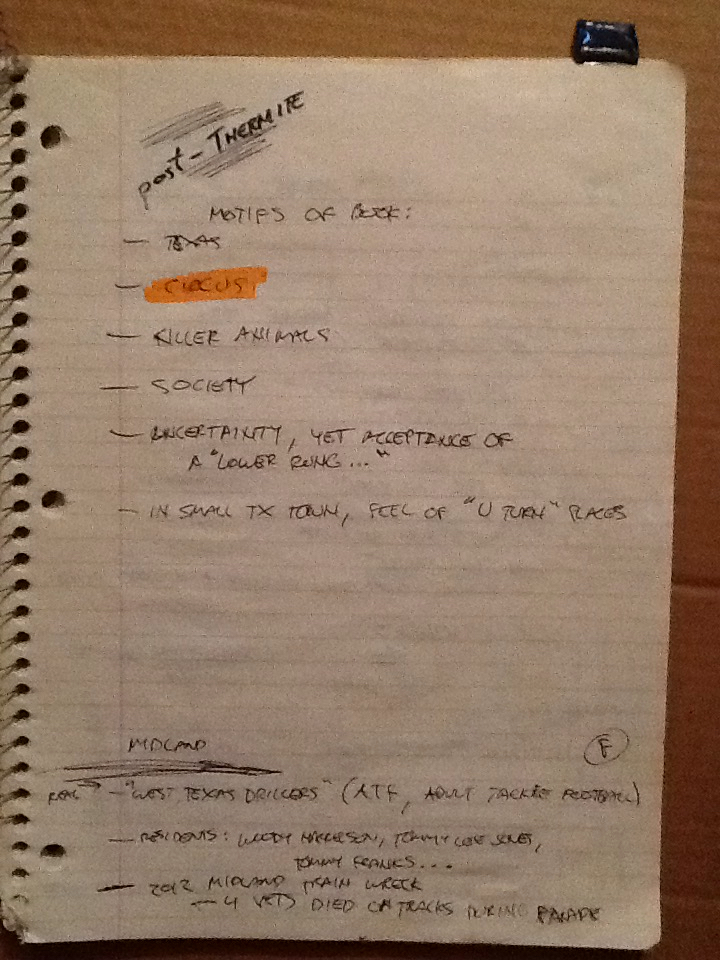 post-THERMITE
MOTIFS OF BOOK:
— TEXAS
— CIRCUS
— KILLER ANIMALS
— SOCIETY
— UNCERTAINTY, YET ACCEPTANCE OF
A "LOWER RUNG..."
— IN SMALL TX TOWN, FEEL OF "U TURN" PLACES
MIDLAND
F
REAL → — "WEST TEXAS DRILLERS" (ATF, ADULT TACKLE FOOTBALL)
— RESIDENTS: WOODY HARRELSON, TOMMY LEE JONES,
TOMMY FRANKS...
— 2012 MIDLAND TRAIN WRECK
— 4 VETS DIED ON TRACKS DURING PARADE